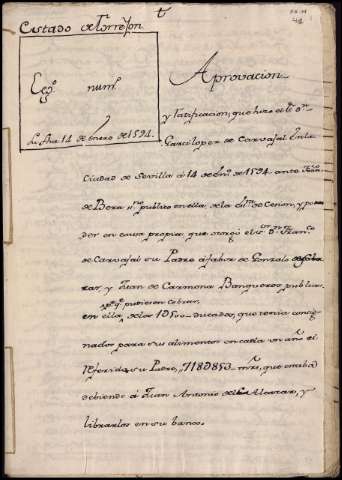 t
Estado de Torrejon.
Leg.º num.º
Su fha 14 de enero de 1594.
Aprovacion
y ratificacion, que hizo el S.r D.n
Garcilopez de Carvajal en la
Ciudad de Sevilla à 14 de En.º de 1594. ante
de Bera publico en ella, de la de Cesion, y po=
der en causa propia, que otorgó el S.r D.n Fran.co
de Carvajal su Padre à favor de Gonzalo de
y Juan de Carmona Banqueros publicos,
p.ª q.e pudiesen cobrar
en ella, de los 1500 Ducados, que tenia consig=
nados para sus alimentos en cada un año el
referido su Padre, 718D853 mrs, que estaba
debiendo à Juan Antonio del Alcazar, y
librarlos en su banco.